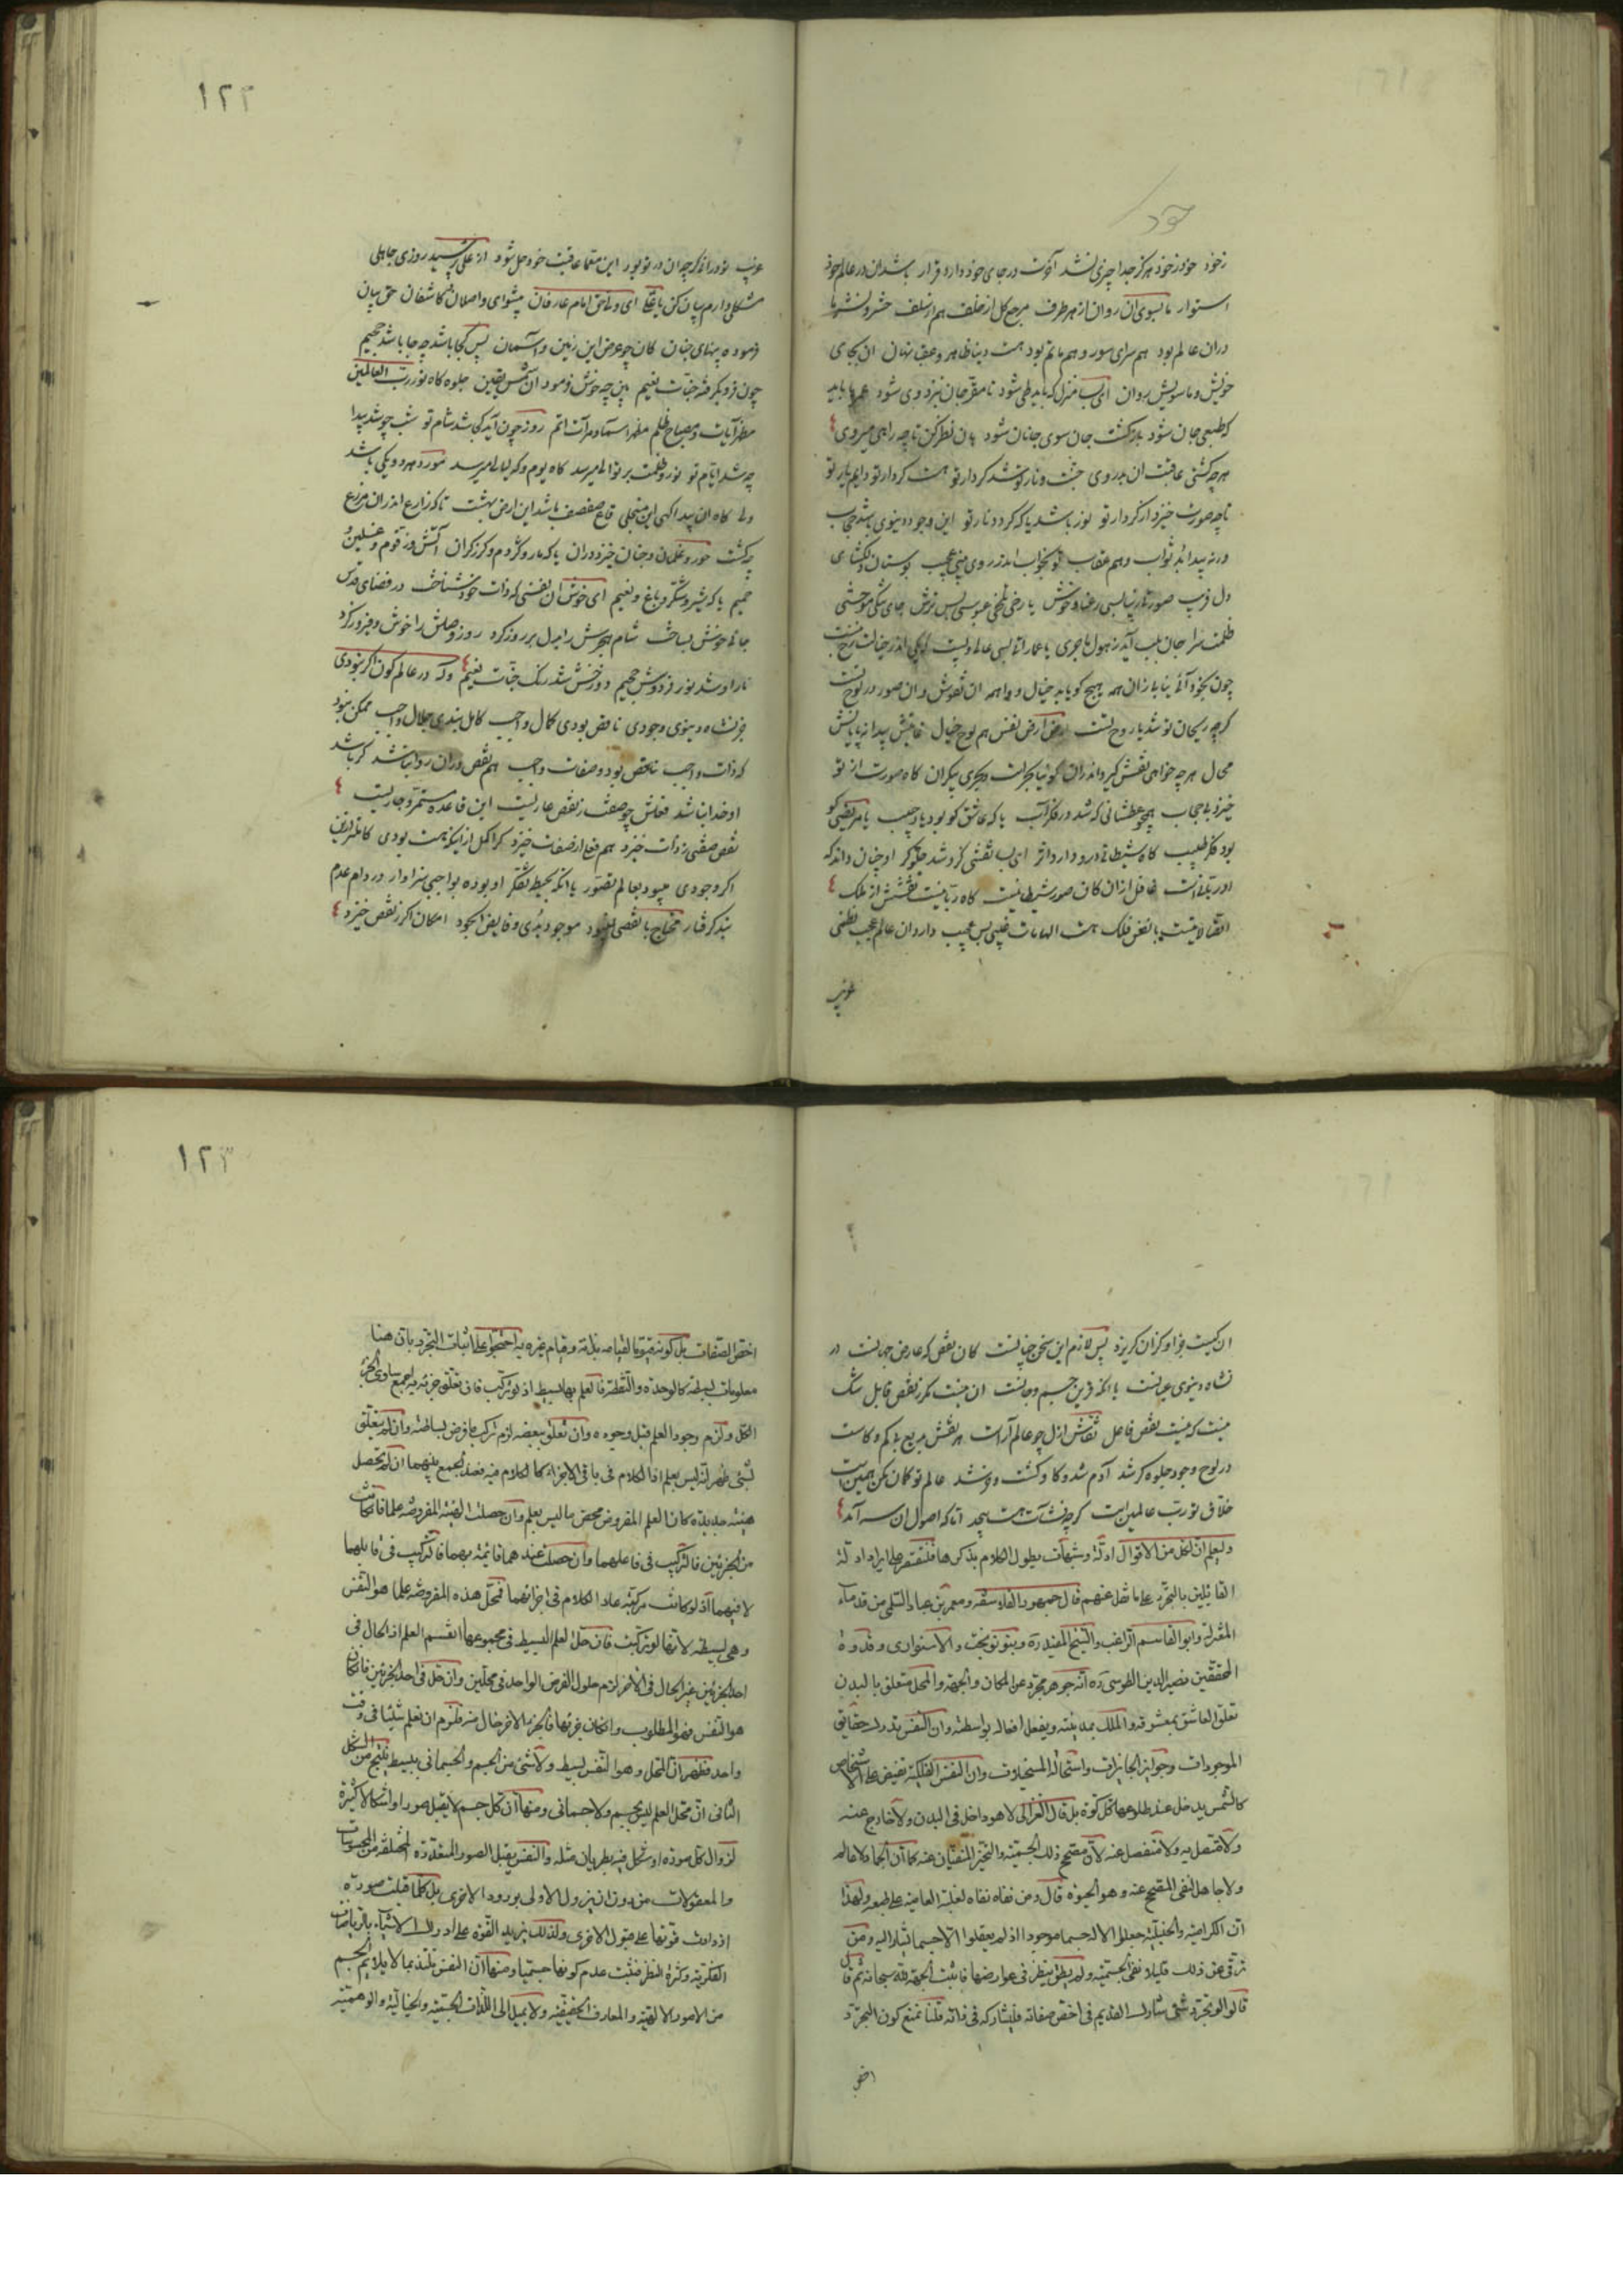 خود
زخود خود زخود هرکز جدا چیزی نشد آخرت در جای خود دارد قرار باشد ان در عالم خود
استوار ما بسوی ان روان از هر طرف مرجع کل از خلف هم از سلف حشر و نشر ما
دران عالم بود هم سرای سور و هم ماتم بود هست دنیا ظاهر و عقبی نهان ان بجای
خویش و ما سویش روان ای بسا منزل که باید طی شود تا مقر جان نزد وی شود عمرها باید
که طبعی جان شود بازکشت جان سوی جانان شود هان نظر کن تا چه راهی میروی
هر چه کشتی عاقبت ان بدروی جنت و نار تو شد کردار تو هست کردار تو دایم یار تو
تا چه صورت خیزد از کردار تو نور باشد یا که کردد نار تو این وجود دنیوی باشد حجاب
ورنه پیدا بُد ثواب و هم عقاب تو بخواب اندر روی بینی عجیب بوستان دلکشای
دل فریب صورت زیبا بسی رعنا و خوش یا رخی تلخی عبوسی بس ترش جای تنکی موحشی
ظلمت سرا جان بلب آید ز هول ماجری
چون بخود آئی نیابی زان همه هیچ کویا بد خیال و واهمه ان نقوش و ان صور در لوح تست
کرچه ریحان تو شد یا روح تست ارض نفس هم لوح خیال
محال هر چه خواهی نقش کیرد اندران کوئیا بحریست بحری بیکران کاه صورت از تو
خیزد بی حجاب همچو عطشانی که شد در فکر آب یا که عاشق کو بود یاد حبیب یا مریضی کو
بود فکر طبیب کاه شیطانی درو دارد اثر ای بسا نقشی کزو شد جلوه کر او چنان داند که
او ربانی است غافل از ان کان صور شیطانیست کاه ربانیست نقشش از ملک
اتصالاتیست با نفس فلک هست الهامات غیبی بس عجیب دارد ان عالم عجب نظمی
غریب
١٢٢
غریب تو در اندرکه چه ان در تو بود این معما عاقبت خود حل شود از علی پرسید روزی جاهلی
مشکلی دارم بیان کن یا علی ای ولی حق امام عارفان پیشوای واصلان کاشفان حق بیان
فرموده پهنای جنان کان چو عرض این زمین و آسمان پس کجا باشد چه جا باشد جحیم
چون فرو بکرفته جنات نعیم بین چه خوش فرمود ان شمس یقین جلوه کاه نور رب العالمین
مظهر آیات و مصباح ظلم مظهر اسماء و مرآت اتم روز چون آید کجا شد شام تو شب چو شد پیدا
چه شد ایام تو نور و ظلمت بر توالی میرسد کاه یوم و که لیالی میرسد مورد هر دو یکی باشد
ولی کاه ان پیدا کهی این منجلی قاع صفصف باشد این ارض بهشت تا که زارع اندران مزرع
چه کشت حور و غلمان و جنان خیزد دران یا که مار و کژدم و کرز کران آتش و زقوم و غسلین
حمیم یا که شیر و شکر و باغ و نعیم ای خوش ان نفسی که ذات خود شناخت در فضای قدس
جائی خوش بساخت شام هجرش را بدل بر روز کرد روز وصلش را خوش و فیروز کرد
نار او شد نور فردوسش جحیم دوزخش شد رشک جنات نعیم ور نه در عالم کون اکر نبودی
جز نشاه دنیوی وجودی ناقص بودی کمال واجب کامل نبدی جلال واجب ممکن نبود
که ذات واجب ناقص بود و صفات واجب هم نقص دران روا نباشد کر باشد
او خدا نباشد فعلش چو صفت ز نقص عاریست این قاعده مستمر و جاریست
نقص صفتی ز ذات خیزد هم فعل از صفات خیزد کر اکمل از اینکه هست بودی کاملتر ازین
اکر وجودی میبود بعالم تصور یا انکه بحیطه تفکر او بوده بواجبی سزاوار در دام عدم
نبد کرفتار محتاج یا نقصی نبود موجود بدی و فایض الجود امکان اکر ز نقص خیزد
ان کیست جز او کزان کریزد پس لازم این سخن چنانست کان نقص که عارض جهانست در
نشاه دنیوی عیانست یا انکه قرین جسم و جانست ان نیست مکر ز نقص قابل شک
نیست که نیست نقص فاعل نقاش ازل چو عالم آراست هر نقش بدیع بی کم و کاست
در لوح وجود جلوه کر شد آدم شد و کاو کشت و خر شد عالم تو کمان مکن همین است
خلاق تو رب عالمین است کرچه نشآت هست بیحد اما که اصول ان سه آمد
ولیعلم ان لکل من الاقوال ادلة وشبهات یطول الکلام بذکرها فلنقتصر علی ایراد ادلة
القائلین بالتجرد علی ما نقل عنهم قال جمهور الفلاسفه ومعمر بن عباد السلمی من قدماء
المعتزلة وابو القاسم الراغب والشیخ المفید ره وبنو نوبخت والاسواری وقدوة
المحققین نصیر الدین الطوسی ره انه جوهر مجرد عن المکان والجهة والمحل متعلق بالبدن
تعلق العاشق بمعشوقه والملک بمدینته ویفعل افعاله بواسطته وان النفس تدرک حقایق
الموجودات وجواز الجایزات واستحالة المستحیلات وان النفس الفلکیة تفیض علی الاشخاص
کالشمس یدخل عند طلوعها کل کوة بل قال الغزالی لا هو داخل فی البدن ولا خارج عنه
ولا متصل به ولا منفصل عنه لان مصحح ذلک الجسمیة والتحیز المنفیان عنه کما ان الجماد لا عالم
ولا جاهل لنفی المصحح عنه وهو الحیوة قال ومن نفاه نفاه لغلبة العامیة علی طبعه ولهذا
ان الکرامیة والحنبلیة جعلوا الاله جسما موجودا اذ لم یعقلوا الا جسما مشارا الیه ومن
ترقی عن ذلک قلیلا نفی الجسمیة ولم یطق ینظر فی عوارضها فاثبت الجهة لله سبحانه ثم قال
قالوا لو تجرد شئ لشارک القدیم فی اخص صفاته فلیشارکه فی ذاته قلنا نمنع کون التجرد
اخص
١٢٣
اخص الصفات بل کونه قیوما لقیامه بذاته وقیام غیره به احتجوا علی اثبات التجرد بان هنا
معلومات بسیطة کالوحدة والنقطة فالعلم بها بسیط اذ لو ترکب فان تعلق جزئه به اجمع ساوی الجزء
الکل ولزم وجود العلم قبل وجوده وان تعلق ببعضه لزم ترکب ما فرض بساطته وان لم یتعلق
بشئ ظهر انه لیس بعلم اذ الکلام فی باقی الاجزاء کالکلام فیه فعند الجمع بینهما ان لم تحصل
هیئة جدیدة کان العلم المفروض محض ما لیس بعلم وان حصلت الهیئة المفروضه علما فان کانت
من الجزئین فالترکیب فی فاعلهما وان حصلت عندهما قائمة بهما فالترکیب فی قابلهما
لا فیهما اذ لو کانت مرکبة عاد الکلام فی اجزائهما فمحل هذه المفروضه علما هو النفس
وهی بسیطة لانها لو ترکبت فان حل العلم البسیط فی مجموعها انقسم العلم اذ الحال فی
احد الجزئین غیر الحال فی الآخر لزم حلول العرض الواحد فی محلین وان حل فی احد الجزئین فان کان
هو النفس فهو المطلوب وان کان غیرها فالجزء الاخر خال منه فلزم ان نعلم شیئا فی وقت
واحد فظهر ان المحل وهو النفس بسیط ولا شئ من الجسم والجسمانی ببسیط ینتج من الشکل
الثانی ان محل العلم لیس بجسم ولا جسمانی ومنها ان کل جسم لا یقبل صورا واشکالا کثیرة
لزوال کل صورة او شکل فیه بطریان مثله والنفس یقبل الصور المتعددة المختلفة من المحسوسات
والمعقولات من دون ان یزول الاولی بورود الاخری بل کلما قبلت صورة
ازدادت قوتها علی قبول الاخری ولذلک یزید القوة علی ادراک الاشیاء بالریاضات
الفکریة وکثرة النظر فثبت عدم کونها جسمیا ومنها ان النفس تلتذ بما لا یلایم الجسم
من الامور الالهیة والمعارف الحقیقیة ولا یمیل الی اللذات الجسمیة والخیالیة والوهمیة